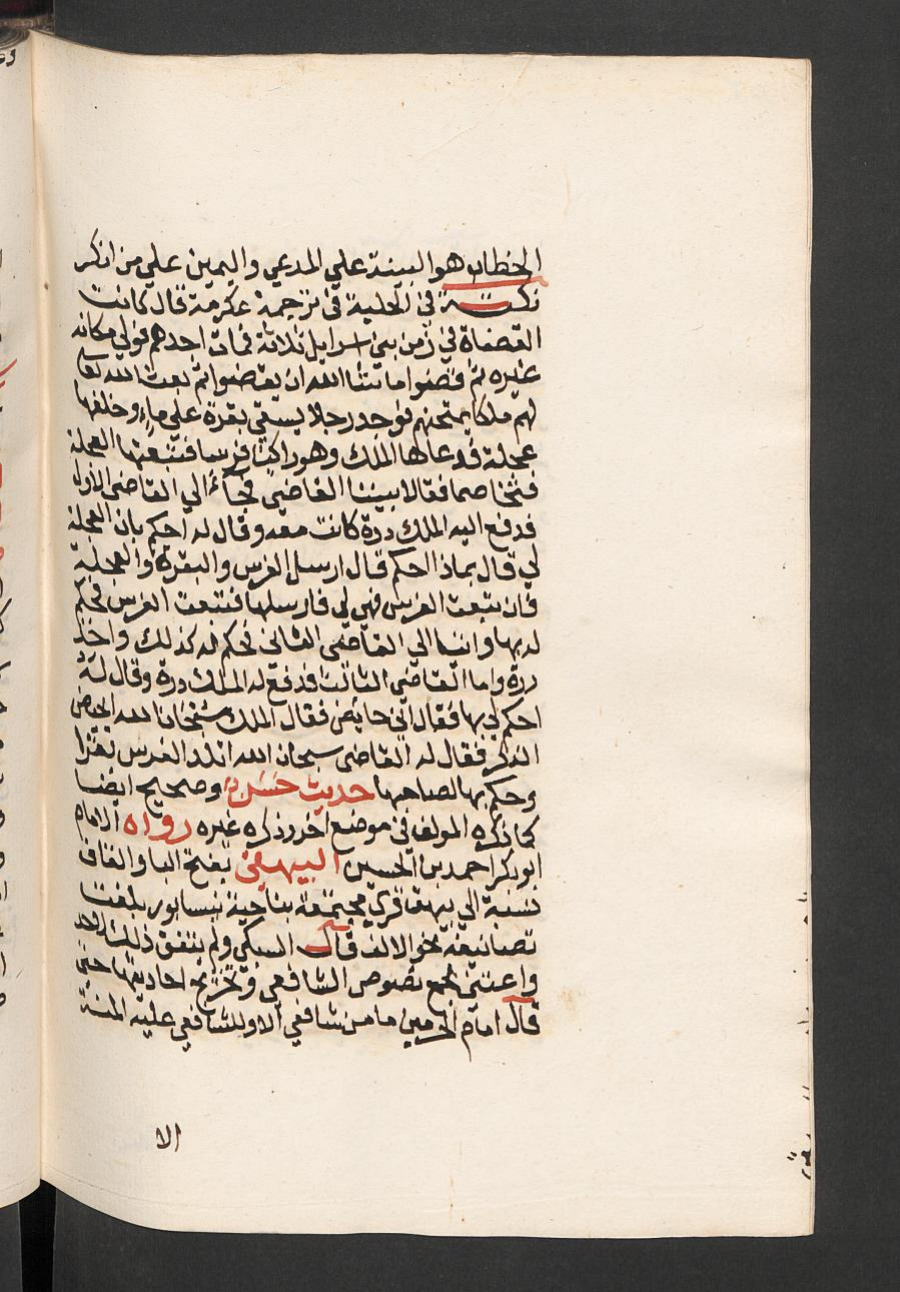 الخطاب هو البينة علي المدعي واليمين علي من انكر
نكتة في الحلية في ترجمة عكرمة قال كانت
القضاة في زمن بني اسرايل ثلاثة فمات احدهم فولي مكانه
غيره ثم قضوا ما شا الله ان يقضوا ثم بعث الله تعالي
لهم ملكا يمتحنهم فوجد رجلا يسقي بقرة علي ماء وخلفها
عجلة فدعاها الملك وهو راكب فرسا فتبعتها العجلة
فتخاصما فقالا بيننا القاضي فجاآ الي القاضي الاول
فدفع اليه الملك درة كانت معه وقال له احكم بان العجلة
لي قال بماذا احكم قال ارسل الفرس والبقرة والعجلة
فان تبعت الفرس فهي لي فارسلها فتبعت الفرس فحكم
له بها واتيا الي القاضي الثاني فحكم له كذلك واخذ
درة واما القاضي الثالث فدفع له الملك درة وقال له
احكم لي بها فقال اني حايض فقال الملك سبحان الله ايحيض
الذكر فقال له القاضي سبحان الله اتلد الفرس بقرا
وحكم بها لصاحبها حديث حسن وصحيح ايضا
كما ذكره المولف في موضع اخر وذكره غيره رواه الامام
ابو بكر احمد بن الحسين البيهقي بفتح البا والقاف
نسبة الي بيهق قري مجتمعة بناحية نيسابور بلغت
تصانيفه نحو الالف قال السبكي ولم يتفق ذلك لاحد
واعتني بجمع نصوص الشافعي وتخريج احاديثها حتي
قال امام الحرمين ما من شافعي الا وللشافعي عليه المنة
الا